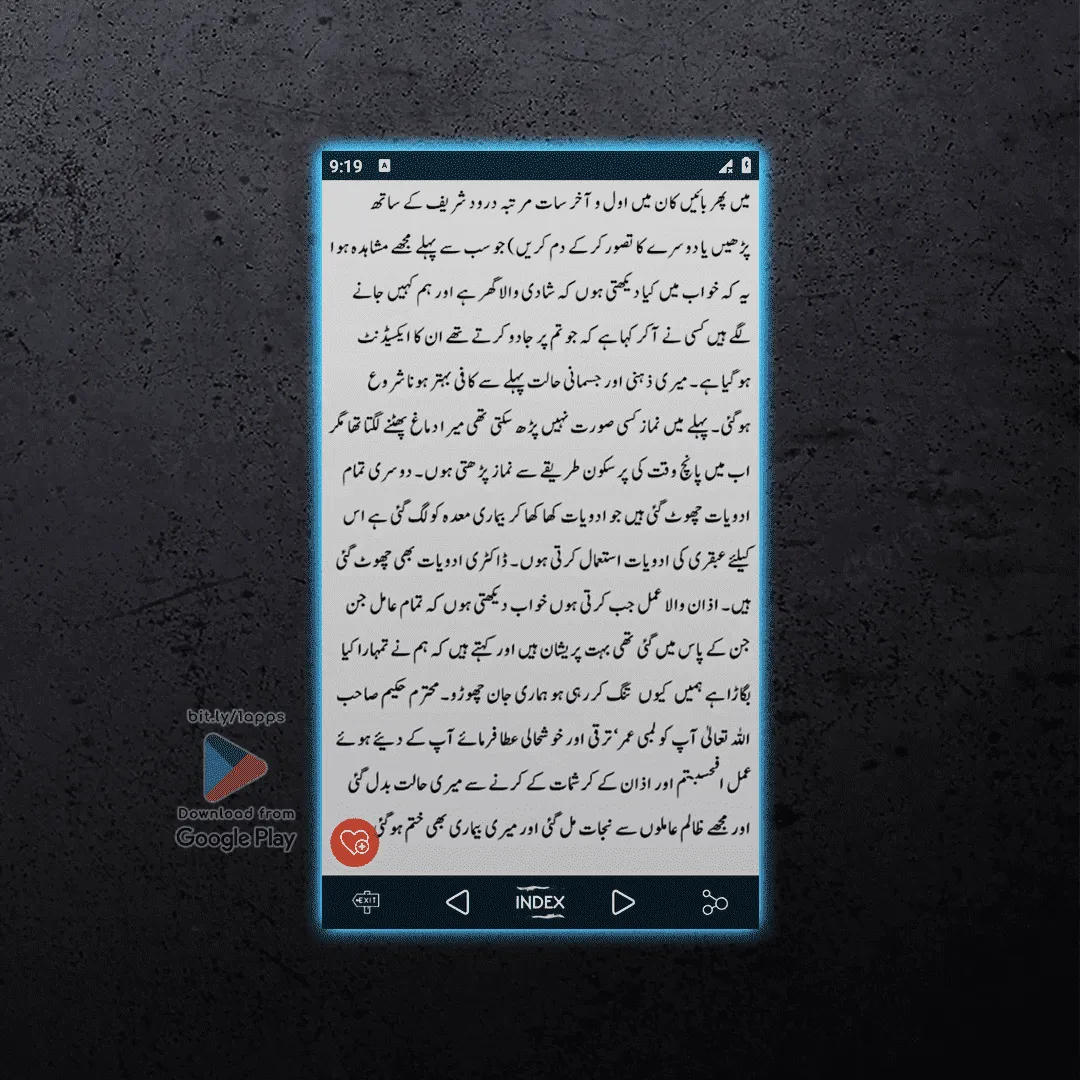 9:19
میں پھر بائیں کان میں اول و آخر سات مرتبہ درود شریف کے ساتھ
پڑھیں یا دوسرے کا تصور کر کے دم کریں) جو سب سے پہلے مجھے مشاہدہ ہوا
یہ کہ خواب میں کیا دیکھتی ہوں کہ شادی والا گھر ہے اور ہم کہیں جانے
لگے ہیں کسی نے آ کر کہا ہے کہ جو تم پر جادو کرتے تھے ان کا ایکسیڈنٹ
ہو گیا ہے۔ میری ذہنی اور جسمانی حالت پہلے سے کافی بہتر ہونا شروع
ہو گئی۔ پہلے میں نماز کسی صورت نہیں پڑھ سکتی تھی میرا دماغ پھٹنے لگتا تھا مگر
اب میں پانچ وقت کی پرسکون طریقے سے نماز پڑھتی ہوں۔ دوسری تمام
ادویات چھوٹ گئی ہیں جو ادویات کھا کھا کر بیماری معدہ کو لگ گئی ہے اس
کیلئے عبقری کی ادویات استعمال کرتی ہوں۔ ڈاکٹری ادویات بھی چھوٹ گئی
ہیں۔ اذان والا عمل جب کرتی ہوں خواب دیکھتی ہوں کہ تمام عامل جن
جن کے پاس میں گئی تھی بہت پریشان ہیں اور کہتے ہیں کہ ہم نے تمہارا کیا
بگاڑا ہے ہمیں کیوں تنگ کر رہی ہو ہماری جان چھوڑو۔ محترم حکیم صاحب
اللہ تعالیٰ آپ کو لمبی عمر‘ ترقی اور خوشحالی عطا فرمائے آپ کے دیئے ہوئے
عمل افحسبتم اور اذان کے کرشمات کے کرنے سے میری حالت بدل گئی
اور مجھے ظالم عاملوں سے نجات مل گئی اور میری بیماری بھی ختم ہو گئی
EXIT INDEX
bit.ly/1apps
Download from
Google Play